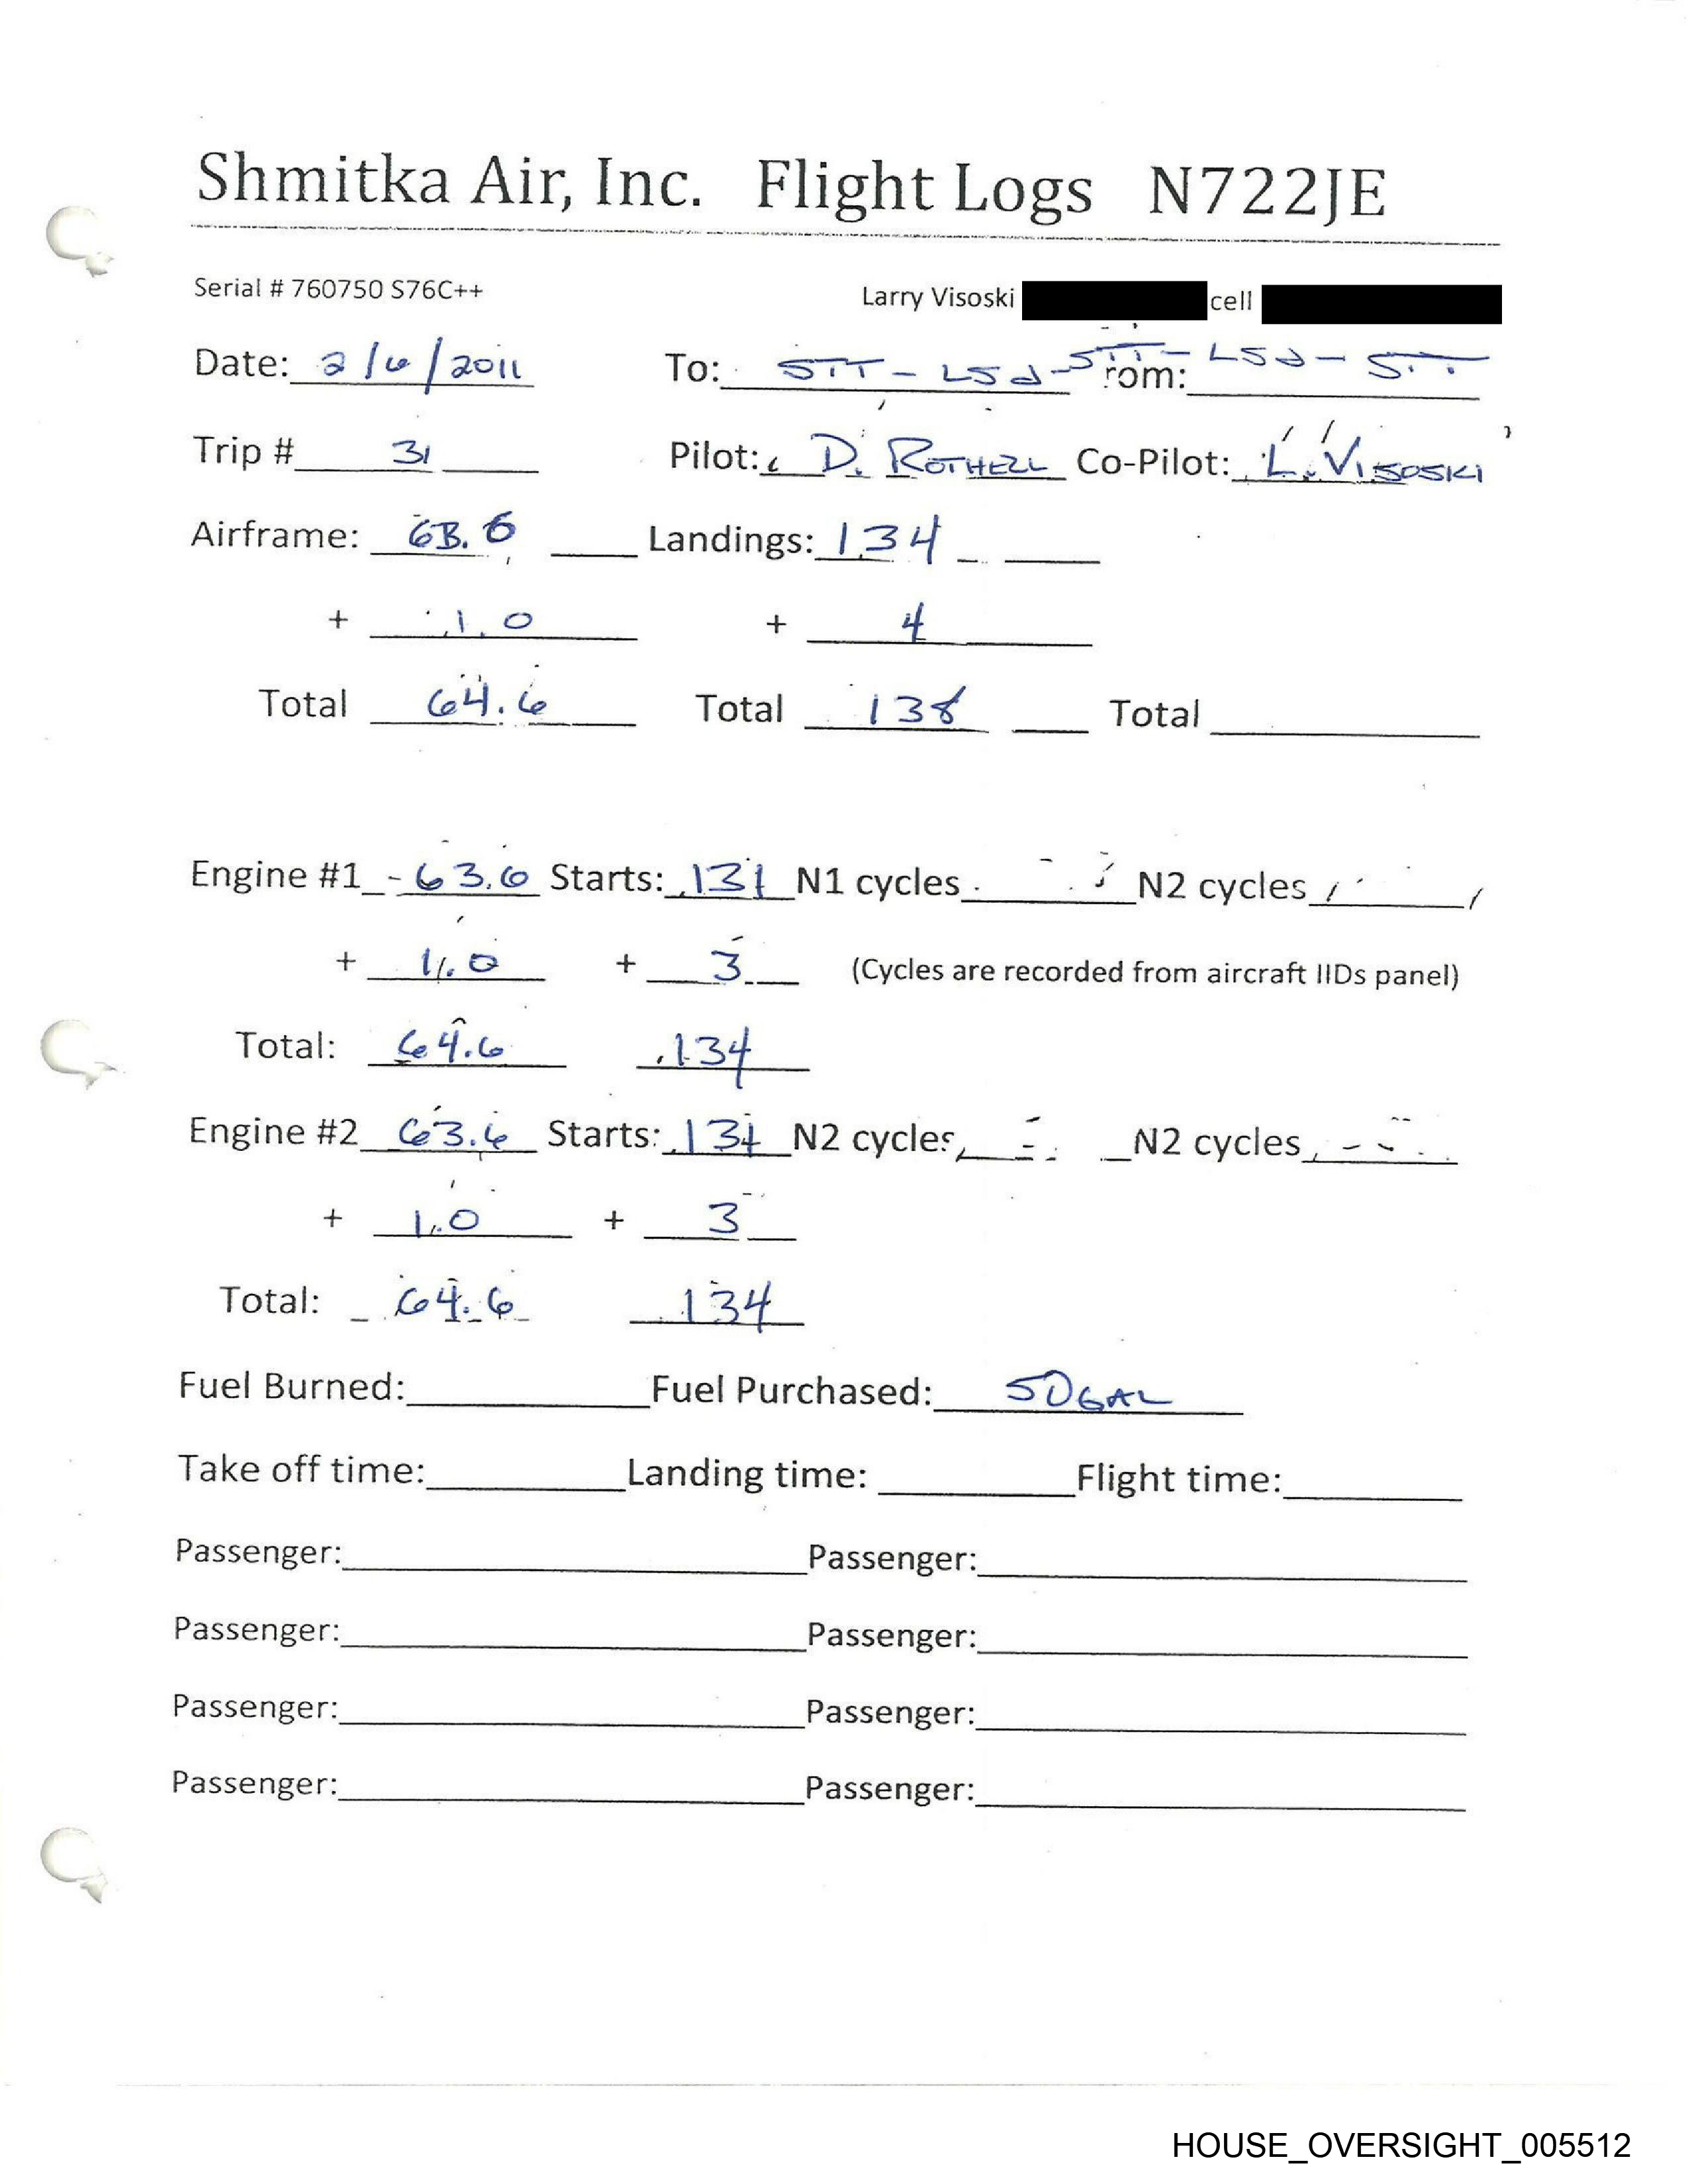 Shmitka Air, Inc. Flight Logs N722JE
Serial # 760750 S76C++ Larry Visoski cell
Date: 2/6/2011 To: STT - LSJ - STT - LSJ - STT rom:
Trip # 31 Pilot: D. ROTHELL Co-Pilot: L. VISOSKI
Airframe: 63.6 Landings: 134
+ 1.0 + 4
Total 64.6 Total 138 Total
Engine #1 63.6 Starts: 131 N1 cycles N2 cycles
+ 1.0 + 3 (Cycles are recorded from aircraft IIDs panel)
Total: 64.6 134
Engine #2 63.6 Starts: 131 N2 cycles N2 cycles
+ 1.0 + 3
Total: 64.6 134
Fuel Burned: Fuel Purchased: 50 GAL
Take off time: Landing time: Flight time:
Passenger: Passenger:
Passenger: Passenger:
Passenger: Passenger:
Passenger: Passenger:
HOUSE_OVERSIGHT_005512